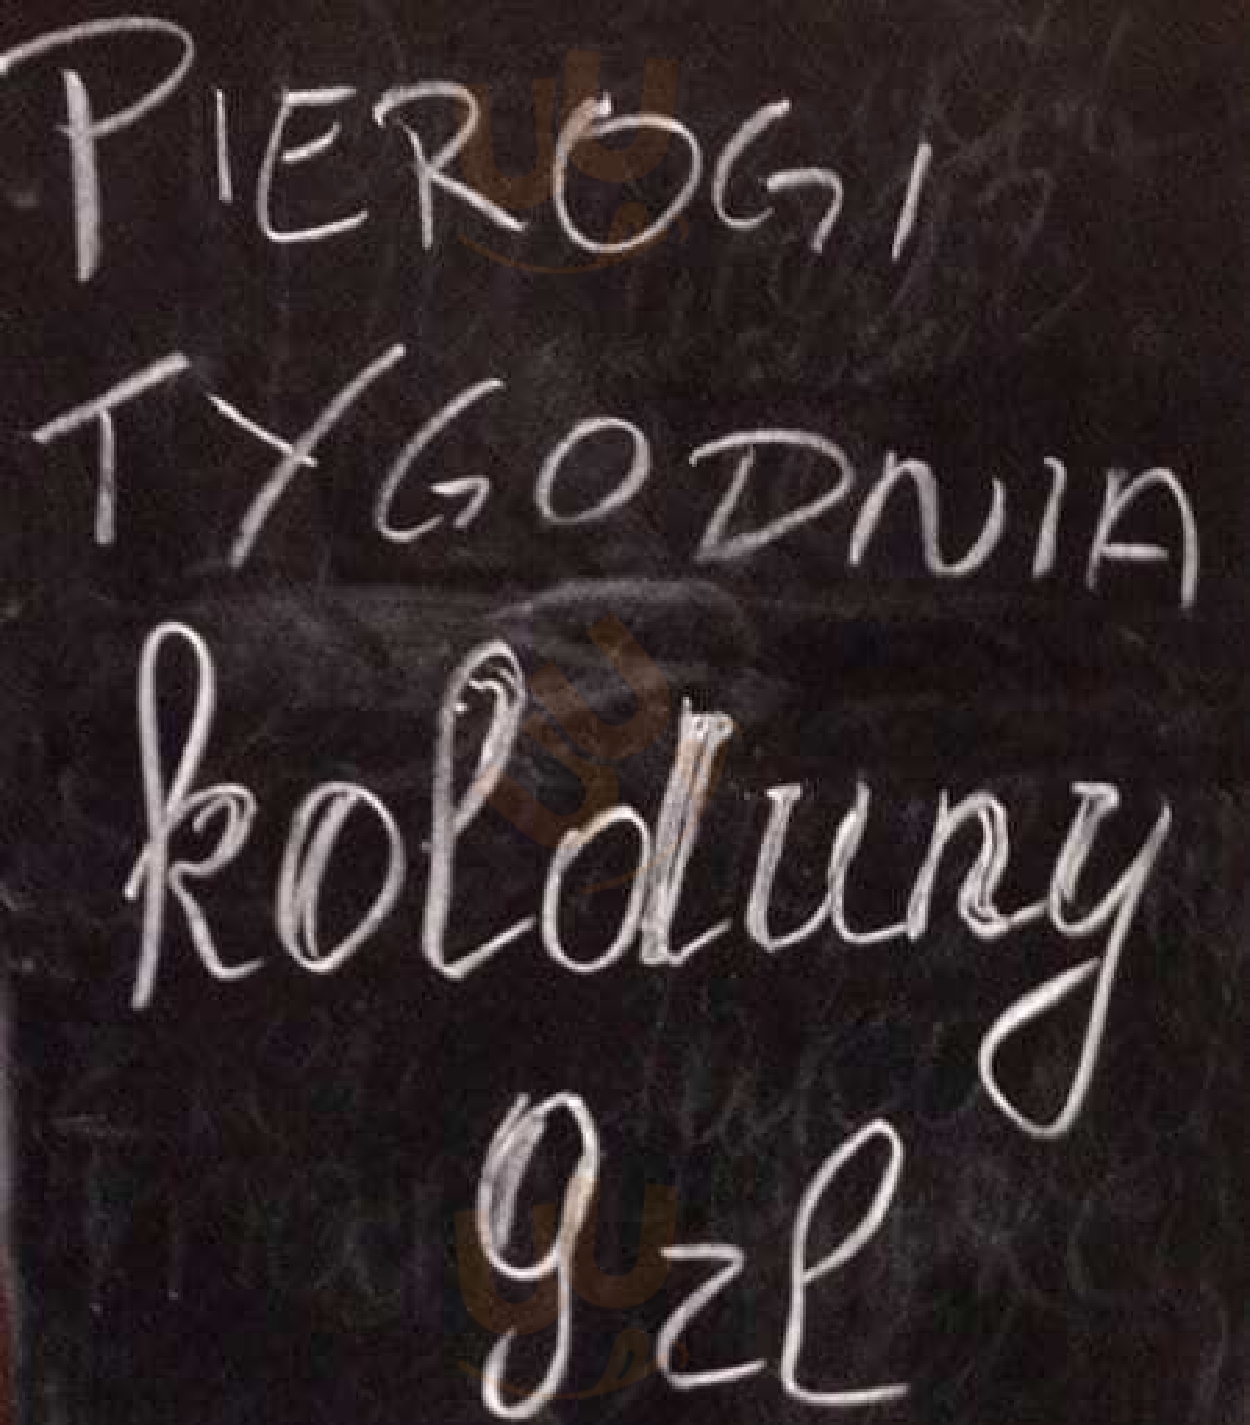 PIEROGI
TYGODNIA
kolduny
9 zl